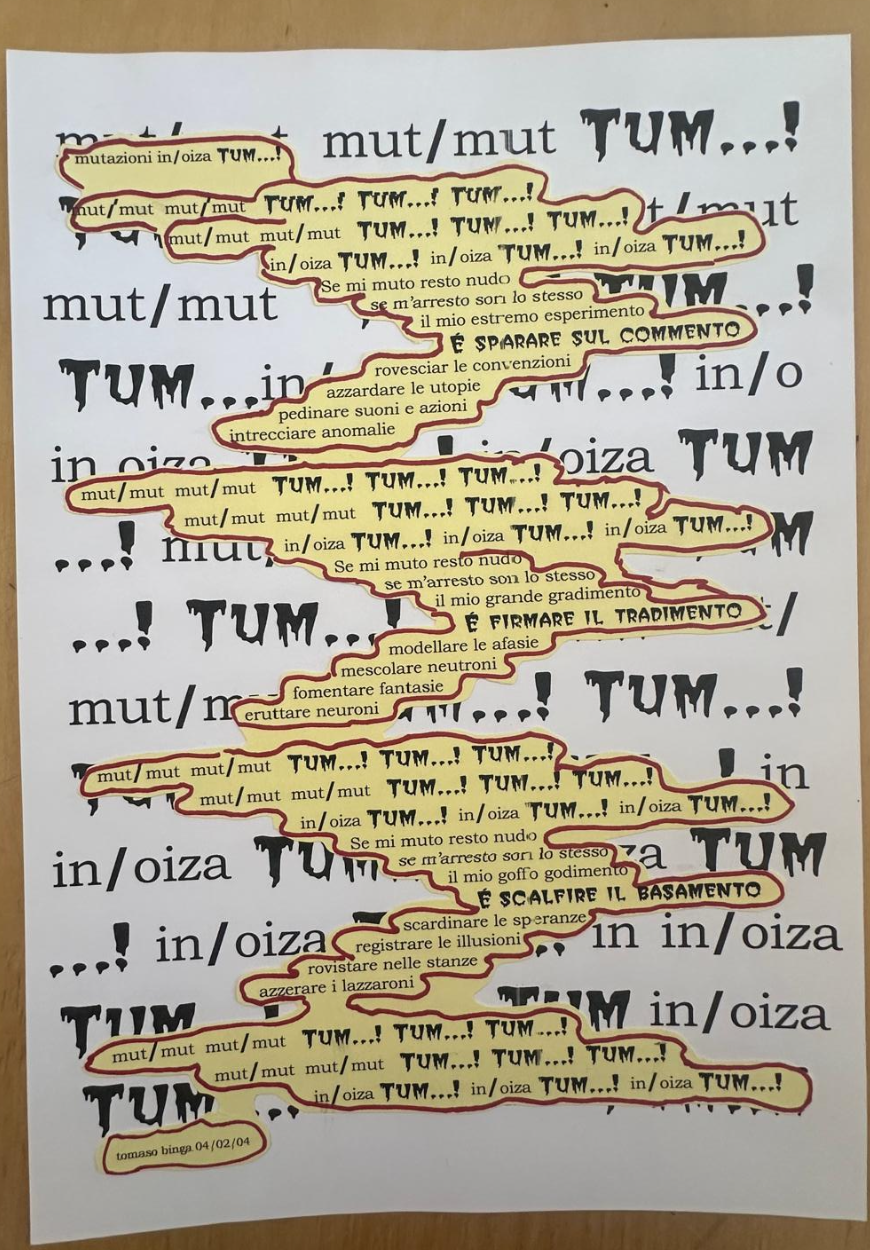 mut/mut TUM...!
mutazioni in/oiza TUM...!
mut/mut mut/mut TUM...! TUM...! TUM...!
t/mut
mut/mut mut/mut TUM...! TUM...! TUM...!
in/oiza TUM...! in/oiza TUM...! in/oiza TUM...!
Se mi muto resto nudo
mut/mut
se m'arresto son lo stesso
il mio estremo esperimento
É SPARARE SUL COMMENTO
rovesciar le convenzioni
TUM...in/
...! in/o
azzardare le utopie
pedinare suoni e azioni
intrecciare anomalie
in oiza
oiza TUM
mut/mut mut/mut TUM...! TUM...! TUM...!
mut/mut mut/mut TUM...! TUM...! TUM...!
in/oiza TUM...! in/oiza TUM...! in/oiza TUM...!
...! mut
Se mi muto resto nudo
se m'arresto son lo stesso
il mio grande gradimento
É FIRMARE IL TRADIMENTO
...! TUM...!
modellare le afasie
mescolare neutroni
fomentare fantasie
eruttare neuroni
mut/m
...! TUM...!
mut/mut mut/mut TUM...! TUM...! TUM...!
in
mut/mut mut/mut TUM...! TUM...! TUM...!
in/oiza TUM...! in/oiza TUM...! in/oiza TUM...!
Se mi muto resto nudo
se m'arresto son lo stesso
in/oiza TUM
za TUM
il mio goffo godimento
É SCALFIRE IL BASAMENTO
scardinare le speranze
...! in/oiza
in in/oiza
registrare le illusioni
rovistare nelle stanze
azzerare i lazzaroni
TUM
TUM in/oiza
mut/mut mut/mut TUM...! TUM...! TUM...!
mut/mut mut/mut TUM...! TUM...! TUM...!
in/oiza TUM...! in/oiza TUM...! in/oiza TUM...!
TUM
tomaso binga 04/02/04